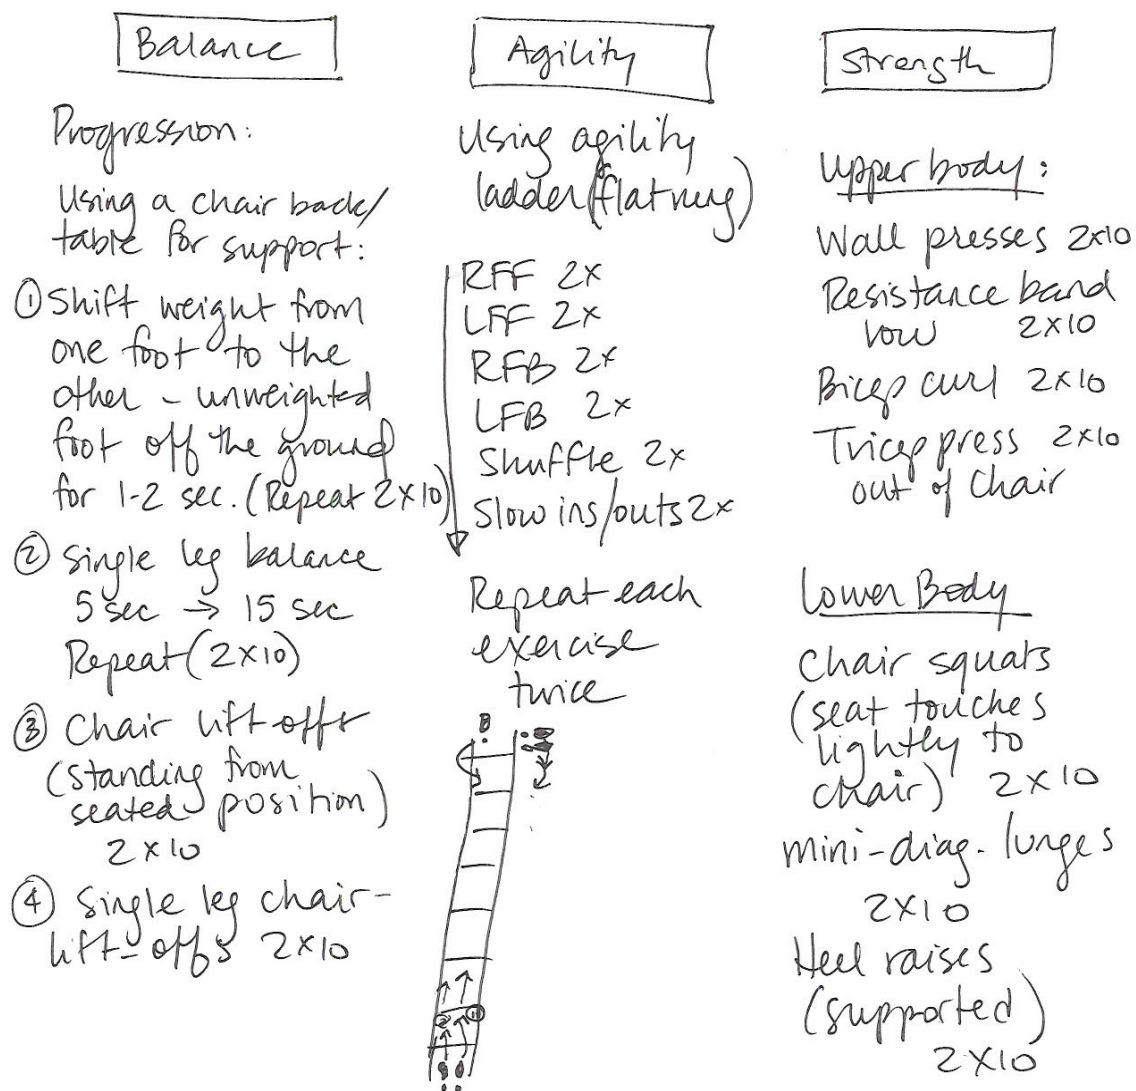 Balance
Progression:
Using a chair back/
table for support:
① Shift weight from
one foot to the
other - unweighted
foot off the ground
for 1-2 sec. (Repeat 2x10)
② Single leg balance
5 sec → 15 sec
Repeat (2x10)
③ Chair lift-offs
(standing from
seated position)
2x10
④ Single leg chair-
lift-offs 2x10
Agility
Using agility
ladder (flat rung)
RFF 2x
LFF 2x
RFB 2x
LFB 2x
Shuffle 2x
Slow ins/outs 2x
Repeat each
exercise
twice
Strength
Upper body:
Wall presses 2x10
Resistance band
row 2x10
Bicep curl 2x10
Tricep press 2x10
out of Chair
Lower Body
Chair squats
(seat touches
lightly to
chair) 2x10
mini-diag. lunges
2x10
Heel raises
(supported)
2x10